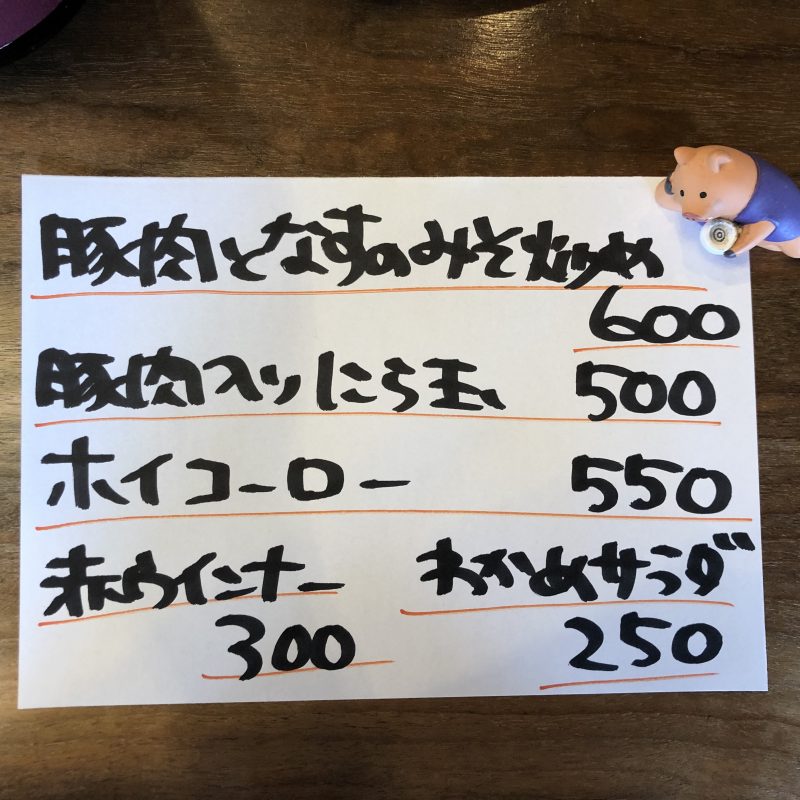 豚肉となすのみそ炒め
600
豚肉入りにら玉 500
ホイコーロー 550
赤ウインナー わかめサラダ
300 250